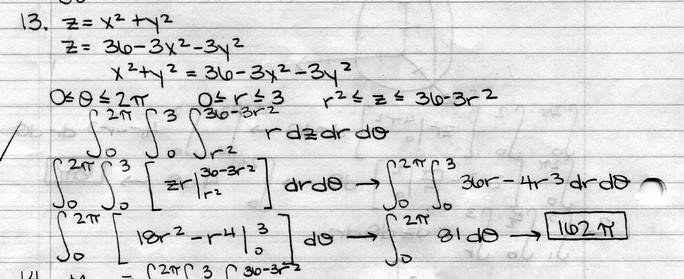 13. z = x² + y²
z = 36-3x²-3y²
x²+y² = 36-3x²-3y²
0≤θ≤2π 0≤r≤3 r²≤z≤36-3r²
∫₀^2π ∫₀^3 ∫_r²^36-3r² r dz dr dθ
∫₀^2π ∫₀^3 [zr|_r²^36-3r²] dr dθ → ∫₀^2π ∫₀^3 36r-4r³ dr dθ
∫₀^2π [18r²-r⁴|₀^3] dθ → ∫₀^2π 81 dθ → 162π
∫^2π ∫^3 ∫^36-3r²